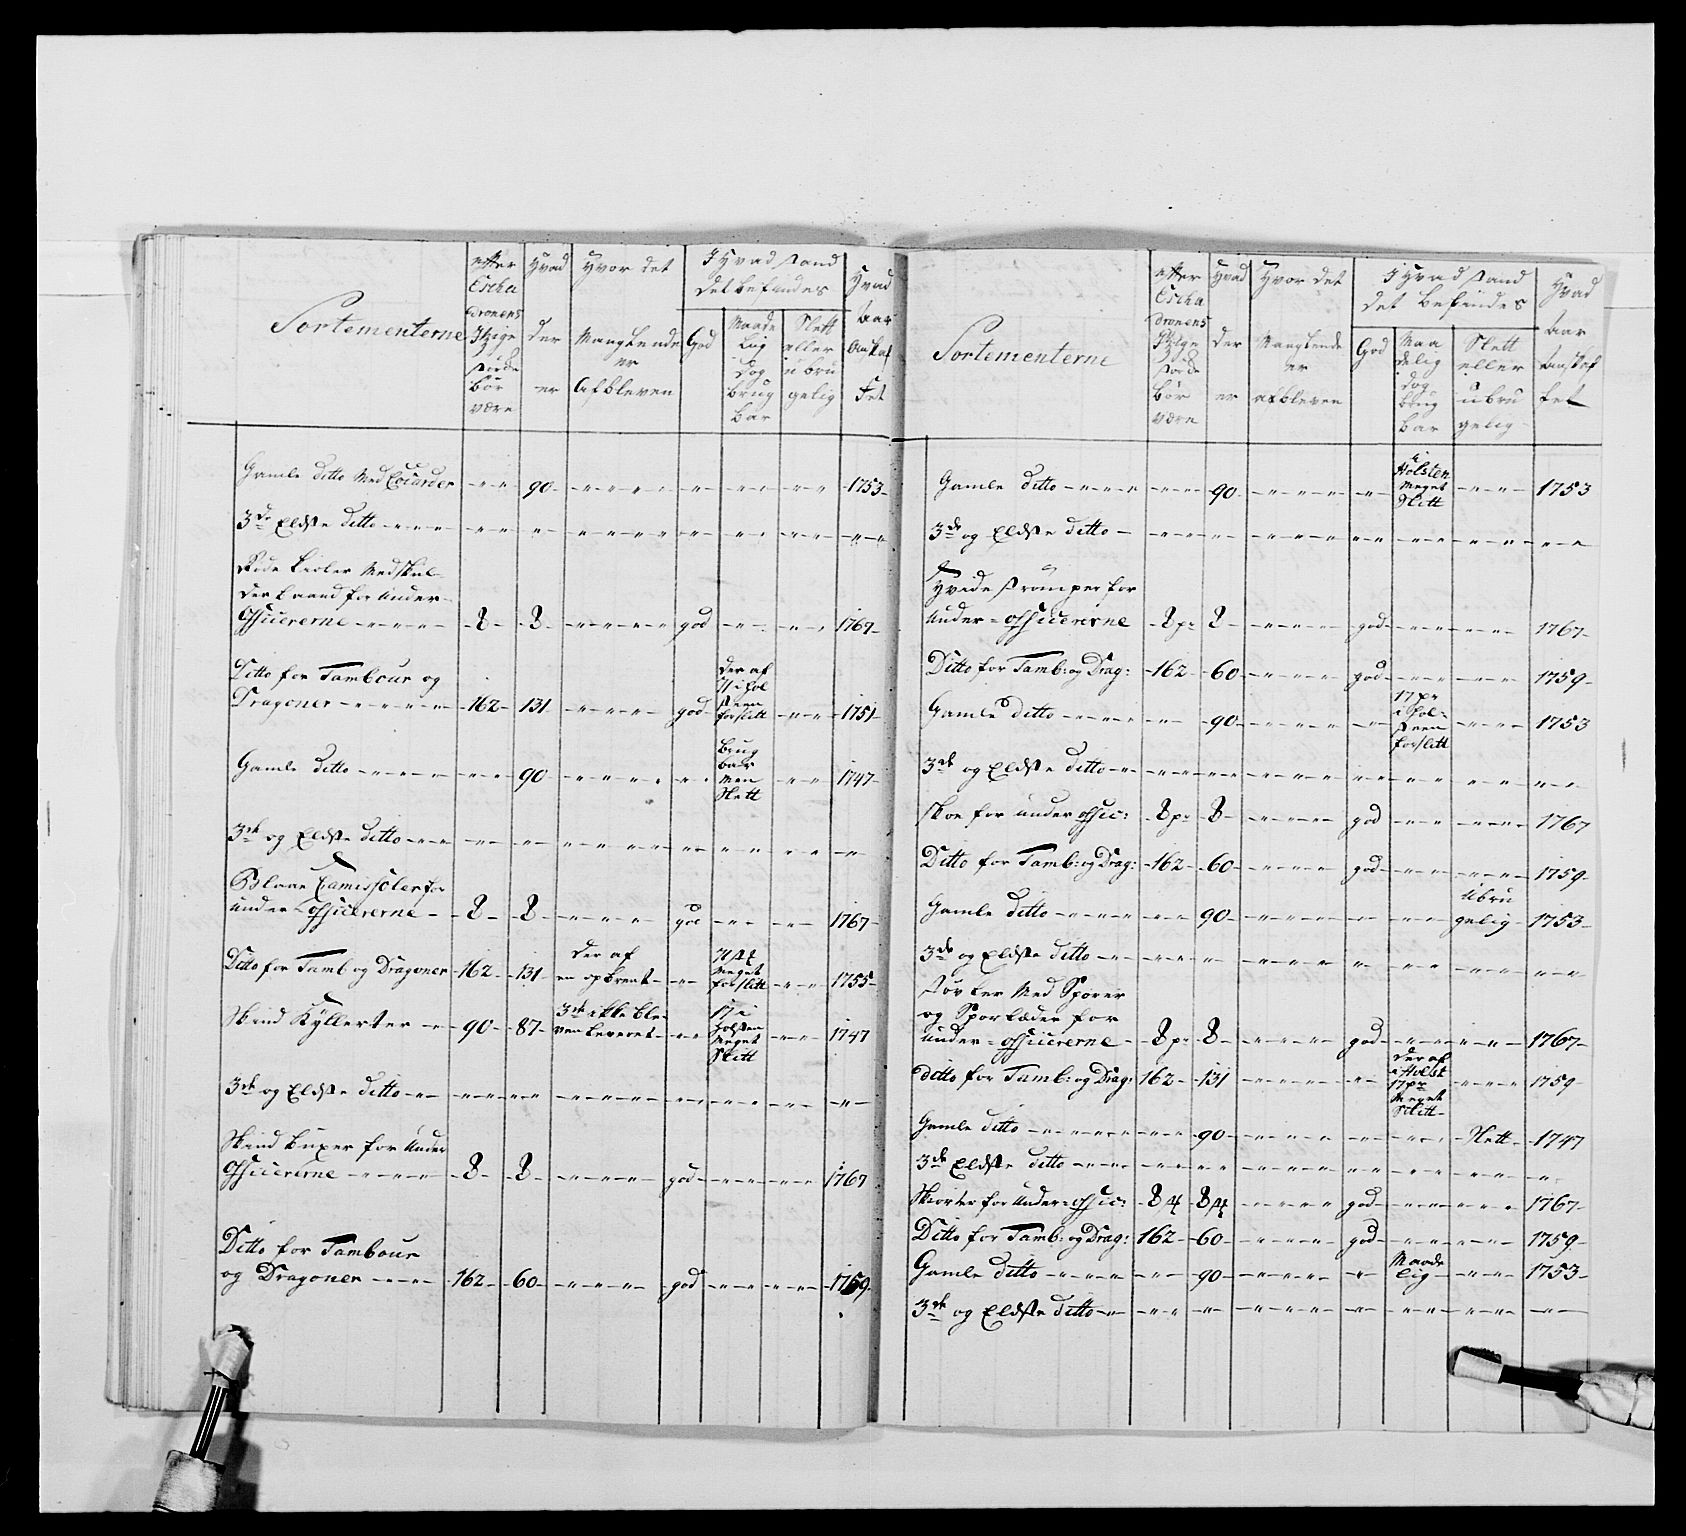 Sortementerne | efter Escha dronens Itzige Storde bør være | Hvad der er | Hvor det Manglende er Afbleven | I Hvad Stand det befindes: God | Maade lig dog brug bar | Slett eller ubru gelig | Hvad Aar Anskaf fet
Gamle ditto Med Couarder | 90 | 1753
3de Eldste ditto
Ride Kioler Med Skul-
der baand for Under-
Officererne | 8 | 8 | god | 1767
Ditto for Tambour og
Dragoner | 162 | 131 | god | der af 71 i Hol steen forslitt | 1751
Gamle ditto | 90 | brug bar Men Slett | 1747
3de og Eldste ditto
Blaae Camissoler for
under-officererne | 8 | 8 | god | 1767
Ditto for Tamb og Dragoner | 162 | 131 | der af en opbrent | Meget forslitt | 1755
Skind Kyllerter | 90 | 87 | 3de ikke ble- ven leveret | 17 i Holsten Meget Slitt | 1747
3de og Eldste ditto
Skind buxer for Under
Officererne | 8 | 8 | god | 1767
Ditto for Tambour
og Dragoner | 162 | 60 | god | 1759

Sortementerne | efter Escha dronens Itzige Storde bør være | Hvad der er | Hvor det Manglende er afbleven | I Hvad Stand det befindes: God | Maa delig dog brug bar | Slett eller ubru gelig | Hvad Aar Anskaf fet
Gamle ditto | 90 | i Holsten Meget Slitt | 1753
3de og Eldste ditto
Hvide Strømper for
Under-officererne | 8 pr | 8 | god | 1767
Ditto for Tamb: og Drag: | 162 | 60 | god | 1759
Gamle ditto | 90 | 17 pr i Hol- steen forslitt | 1753
3de og Eldste ditto
Skoe for under offic: | 8 pr | 8 | god | 1767
Ditto for Tamb: og Drag: | 162 | 60 | god | 1759
Gamle ditto | 90 | Ubru gelig | 1753
3de og Eldste ditto
Støvler Med Sporer
og Sporlæder for
under-officererne | 8 pr | 8 | god | 1767
ditto for Tamb: og Drag: | 162 | 131 | der af i Holst 17 pr Meget Slitt | 1759
Gamle ditto | 90 | Slett | 1747
3de Eldste ditto
Skiorter for Under-offic: | 8 | 8 | god | 1767
Ditto for Tamb: og Drag: | 162 | 60 | god | 1759
Gamle ditto | 90 | Maade lig | 1753
3de og Eldste ditto